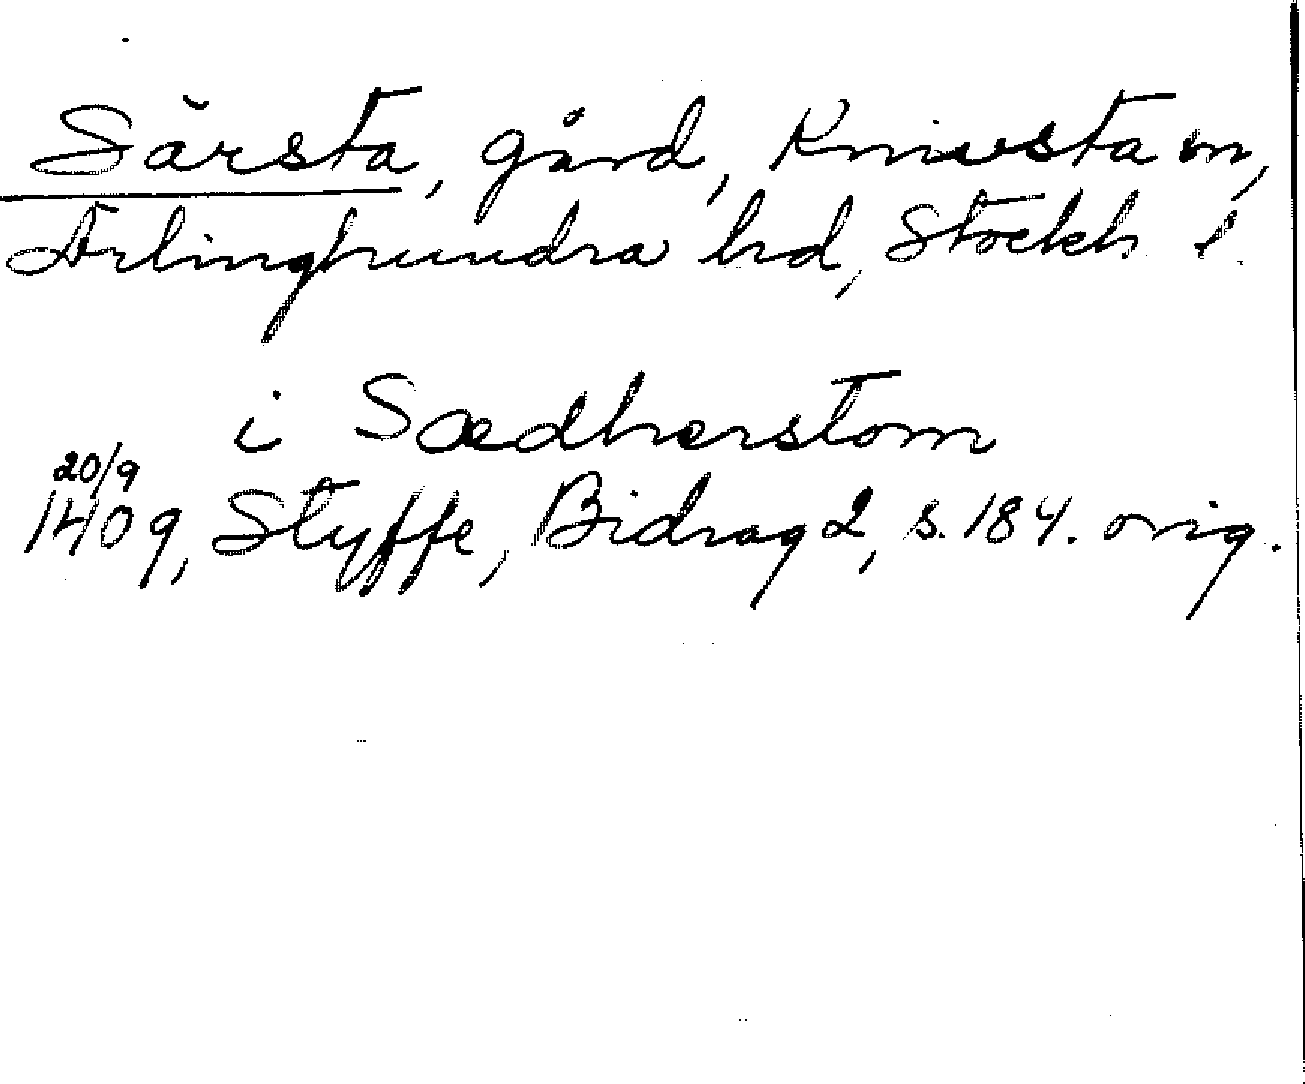 Särsta, gård, Knivsta sn,
Ärlinghundra hd, Stockh. l.
i Sædherstom
20/9
1409, Styffe, Bidrag 2, s. 184. orig.